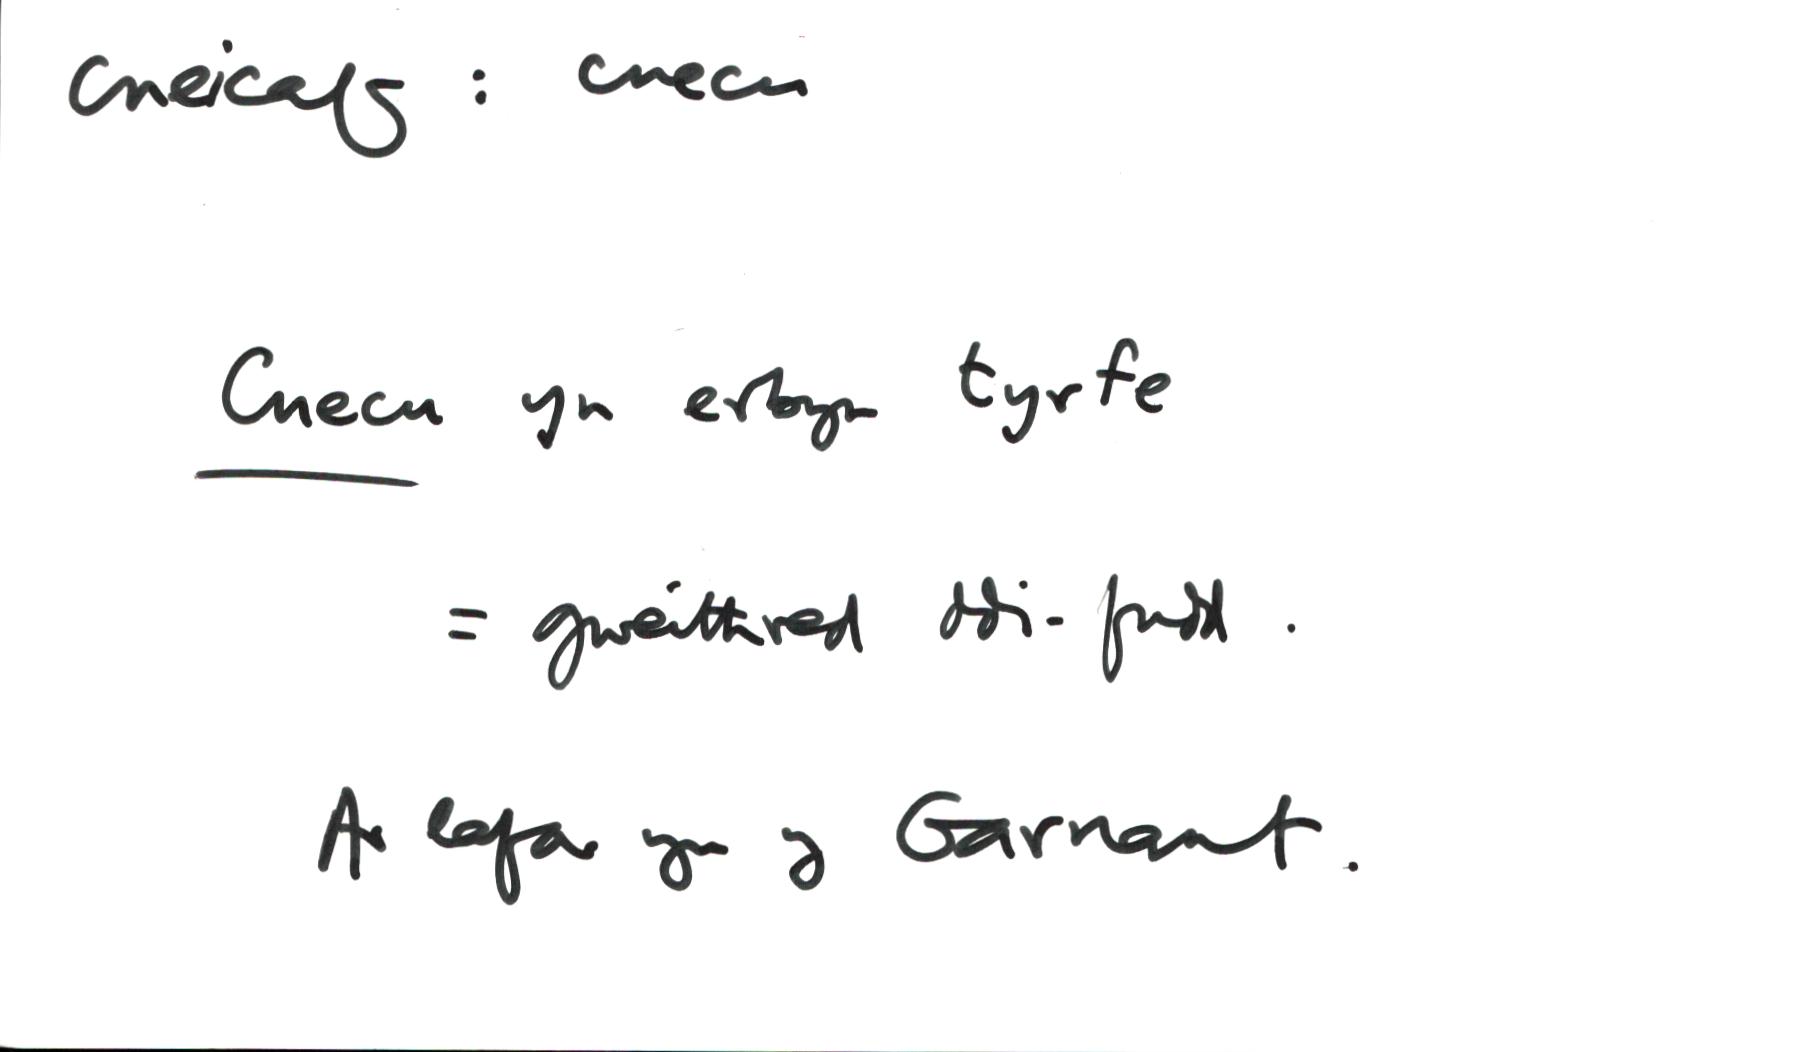 cneicaf : cnecu
Cnecu yn erbyn tyrfe
= gweithred ddi-fudd .
Ar lafar yn y Garnant .